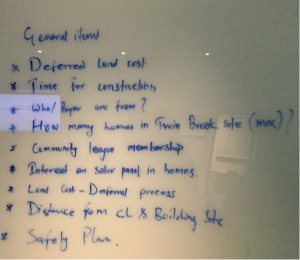 General items
* Deferred land cost
* Time for construction
* Who/ Buyer are from?
* How many homes in Twin Brook site (max)?
* Community league membership
* Interest on solar panel in homes.
* Land Cost - Deferral process
* Distance from CL & Building Site
* Safety Plan.